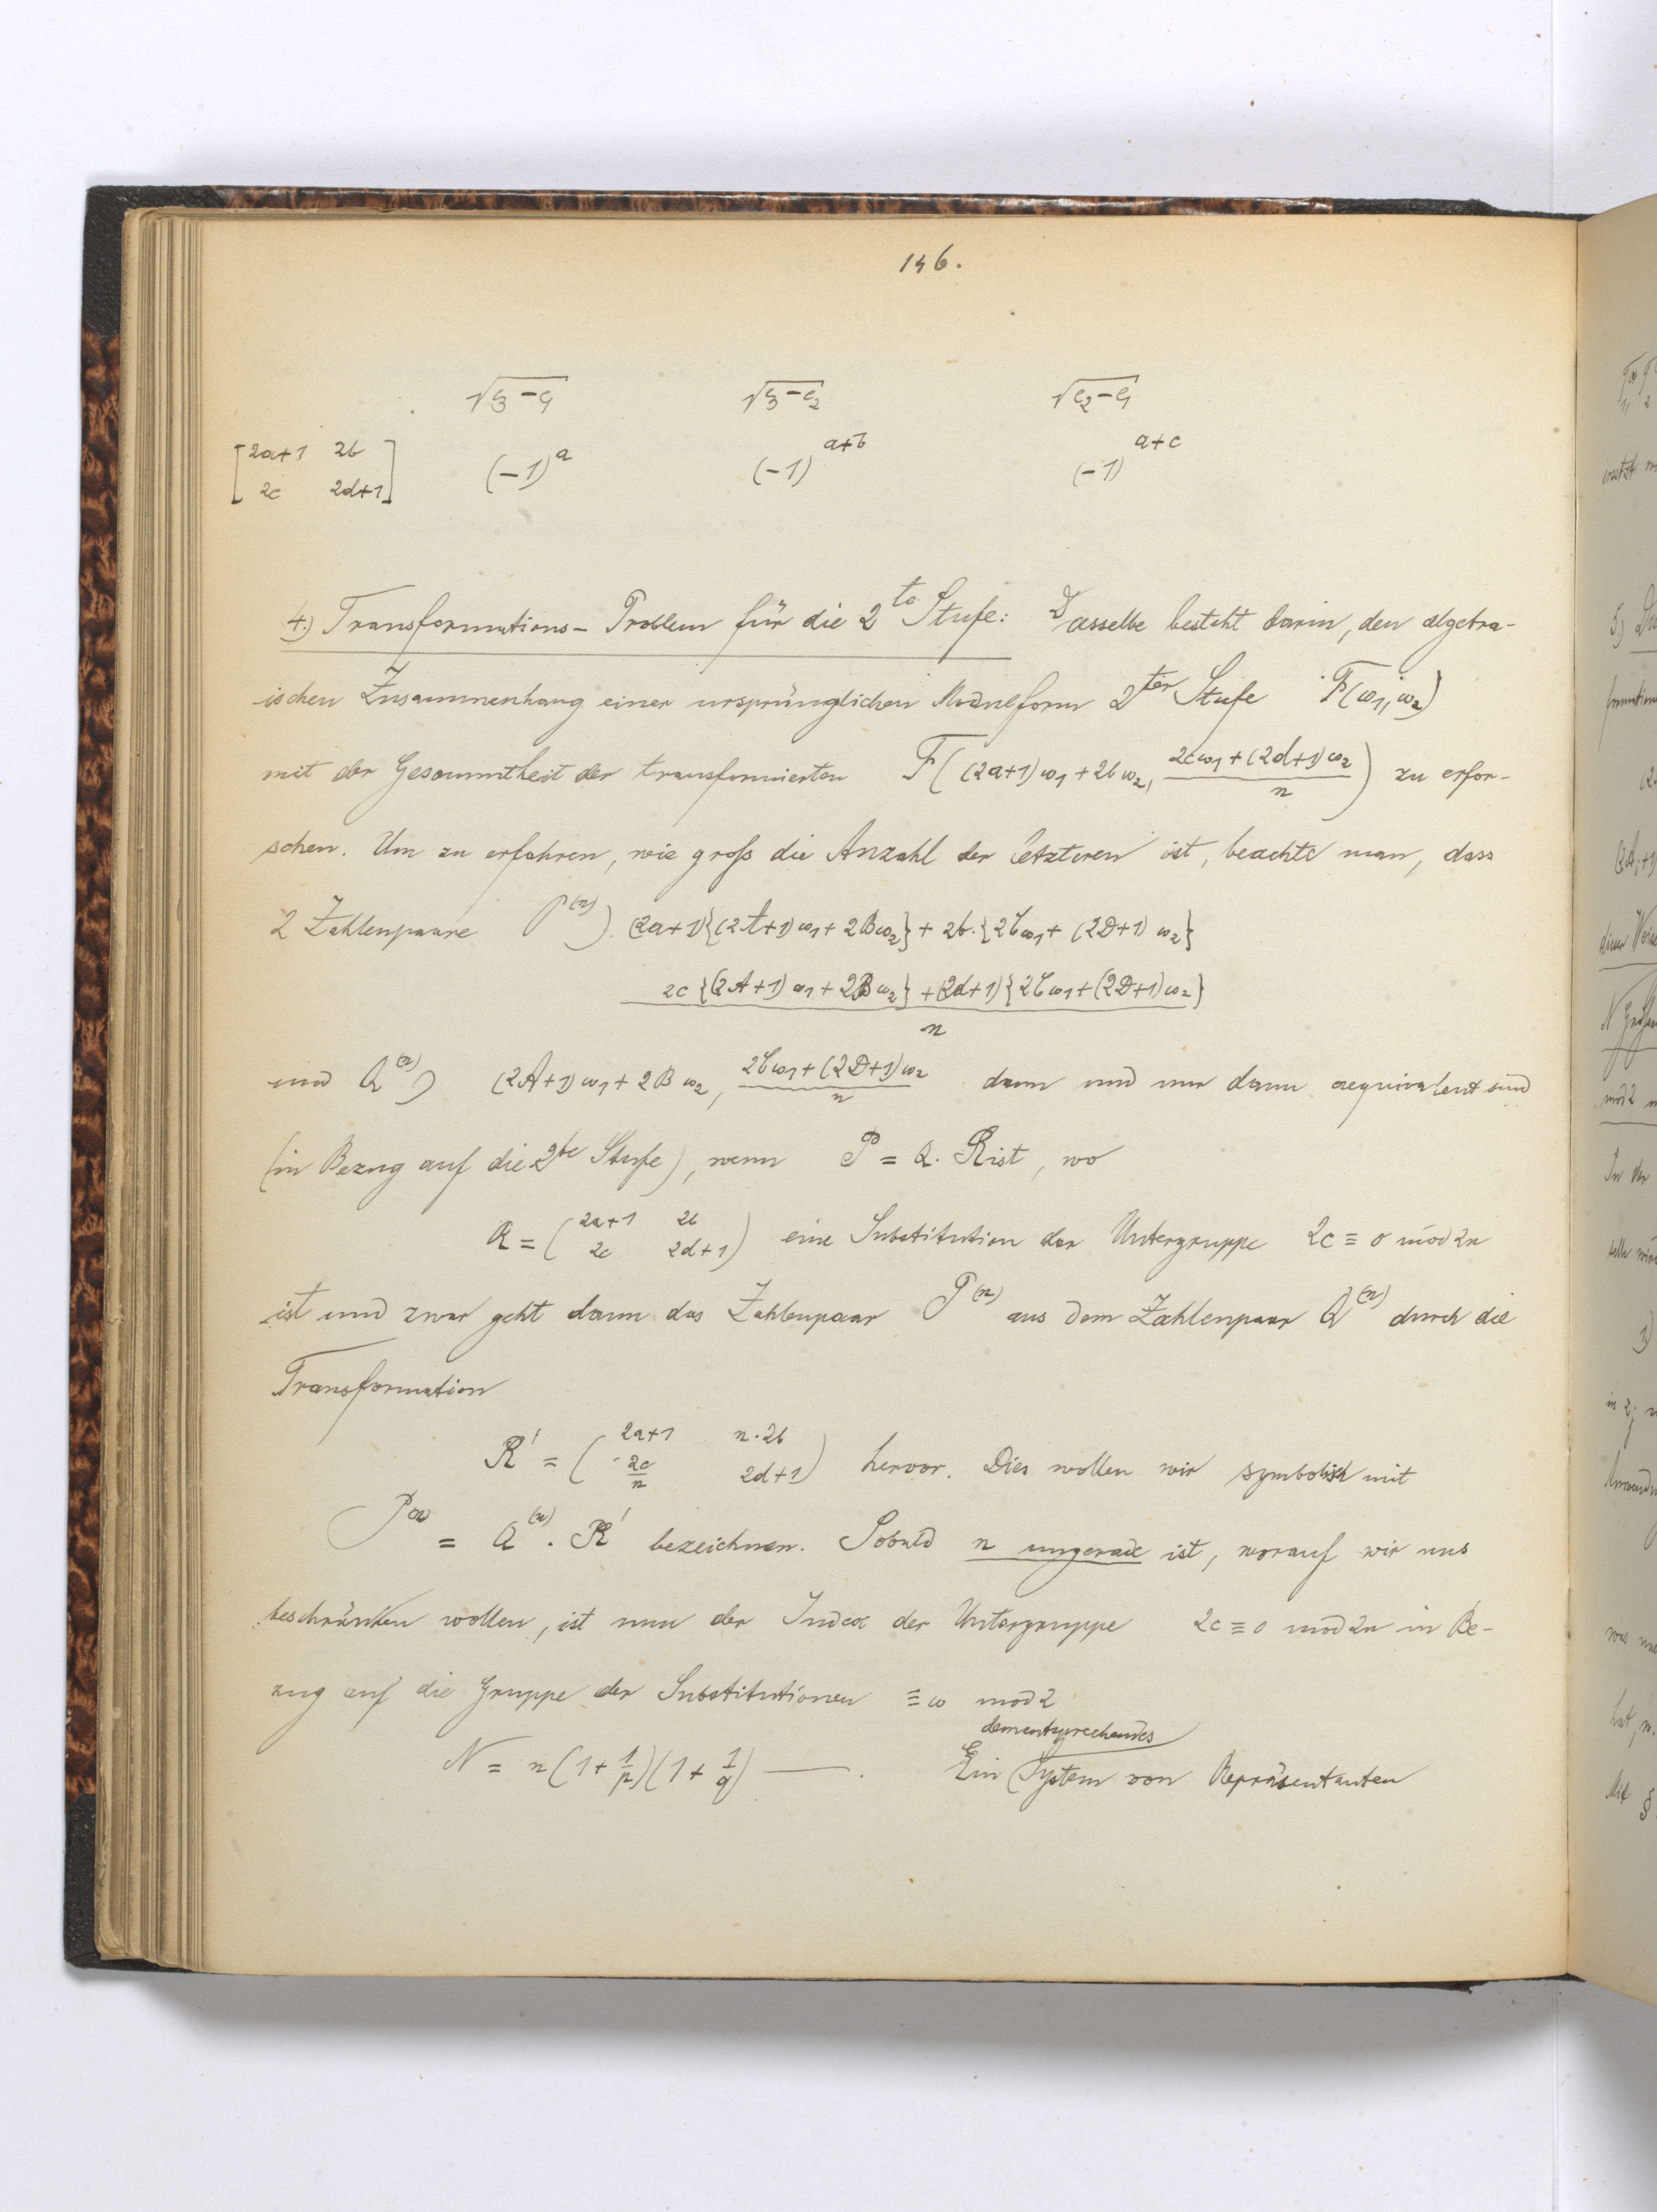 146.
√e3−e1 √e3−e2 √e2−e1
[2a+1 2b / 2c 2d+1] (−1)^a (−1)^{a+b} (−1)^{a+c}
4.) Transformations-Problem für die 2te Stufe: Dasselbe besteht darin, den algebra-
ischen Zusammenhang einer ursprünglichen Modulform 2ter Stufe F(ω1, ω2)
mit der Gesammtheit der transformierten F((2a+1)ω1+2bω2, (2cω1+(2d+1)ω2)/n) zu erfor-
schen. Um zu erfahren, wie groß die Anzahl der letzteren ist, beachte man, dass
2 Zahlenpaare P^(n)) (2a+1){(2A+1)ω1+2Bω2}+2b·{2Cω1+(2D+1)ω2}
2c{(2A+1)ω1+2Bω2}+(2d+1){2Cω1+(2D+1)ω2}
n
und Q^(n)) (2A+1)ω1+2Bω2, (2Cω1+(2D+1)ω2)/n dann und nur dann aequivalent sind
(in Bezug auf die 2te Stufe), wenn P = Q. R ist, wo
R = (2a+1 2b / 2c 2d+1) eine Substitution der Untergruppe 2c ≡ 0 mod 2n
ist und zwar geht dann das Zahlenpaar P^(n) aus dem Zahlenpaar Q^(n) durch die
Transformation
R' = (2a+1 n·2b / 2c/n 2d+1) hervor. Dies wollen wir symbolisch mit
P^(n) = Q^(n) . R' bezeichnen. Sobald n ungerade ist, worauf wir uns
beschränken wollen, ist nun der Index der Untergruppe 2c ≡ 0 mod 2n in Be-
zug auf die Gruppe der Substitutionen ≡ ω mod 2
dementsprechendes
N = n(1+1/p)(1+1/q) —. Ein System von Repräsentanten